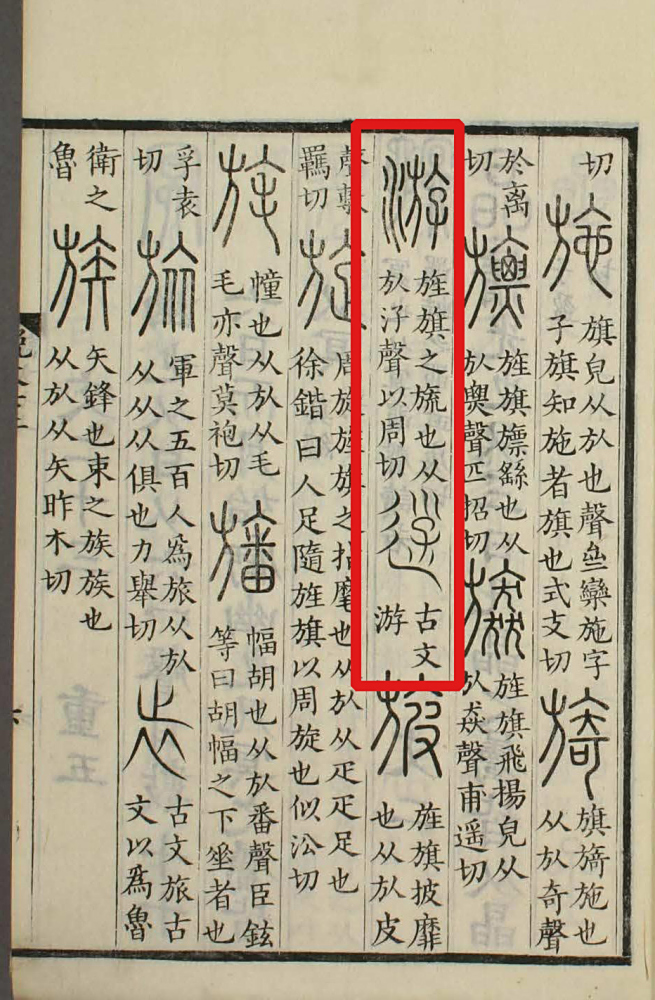 切 施 旗皃从㫃也聲亝欒施字子旗知施者旗也式支切 旖 旗旖施也从㫃奇聲
於离切 旚 旌旗旚繇也从㫃㶾聲匹招切 旌旗飛揚皃从㫃猋聲甫遥切
游 旌旗之旒也从㫃汓聲以周切 古文游 旇 旌旗披靡也从㫃皮
聲敷羈切 旋 周旋旌旗之指麾也从㫃从疋疋足也徐鍇曰人足隨旌旗以周旋也似沿切
旄 幢也从㫃从毛毛亦聲莫袍切 旛 幅胡也从㫃番聲臣鉉等曰胡幅之下𠂹者也
孚袁切 旅 軍之五百人爲旅从㫃从从从俱也力舉切 古文旅古文以爲魯
衛之魯 族 矢鋒也束之族族也从㫃从矢昨木切